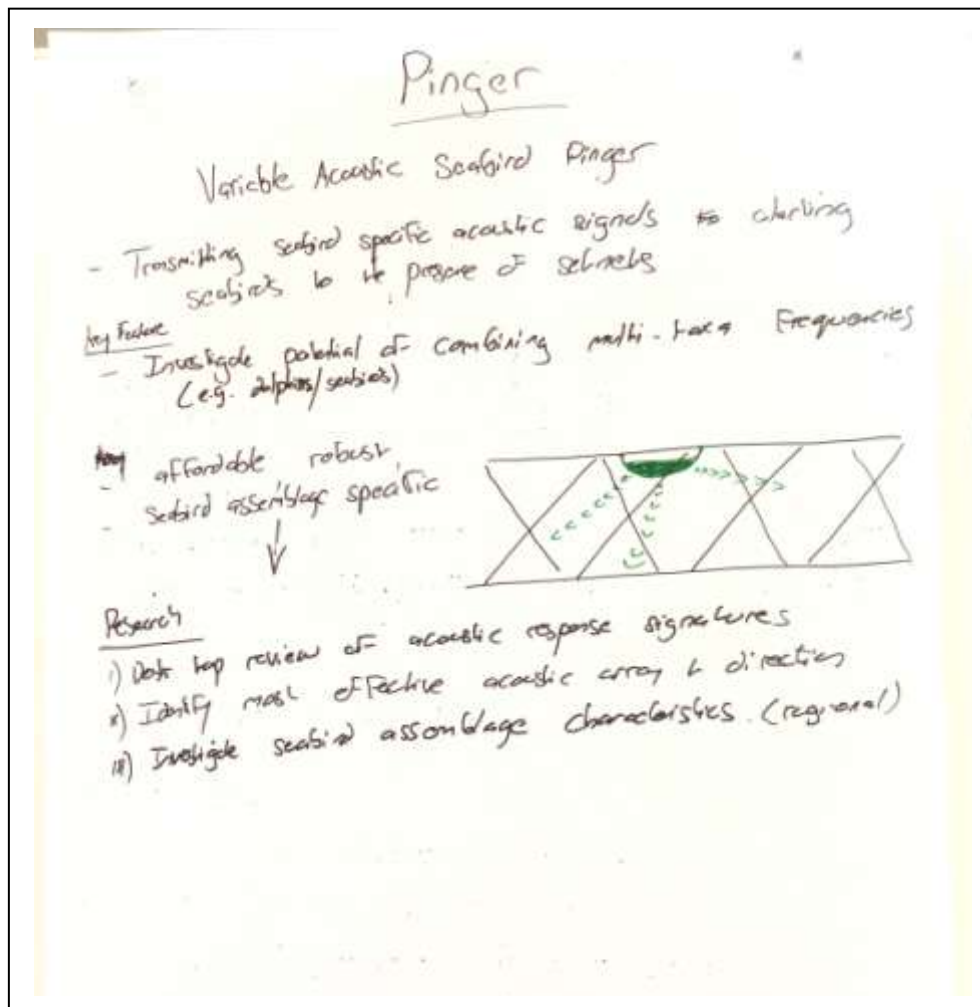 Pinger
Variable Acoustic Seabird Pinger
- Transmitting seabird specific acoustic signals to alerting
seabirds to the presence of setnets
Key Feature
- Investigate potential of combining multi-taxa Frequencies
(e.g. dolphins/seabirds)
- affordable robust
- seabird assemblage specific
Research
i) Desk top review of acoustic response signatures
ii) Identify most effective acoustic array & direction
iii) Investigate seabird assemblage characteristics. (regional)